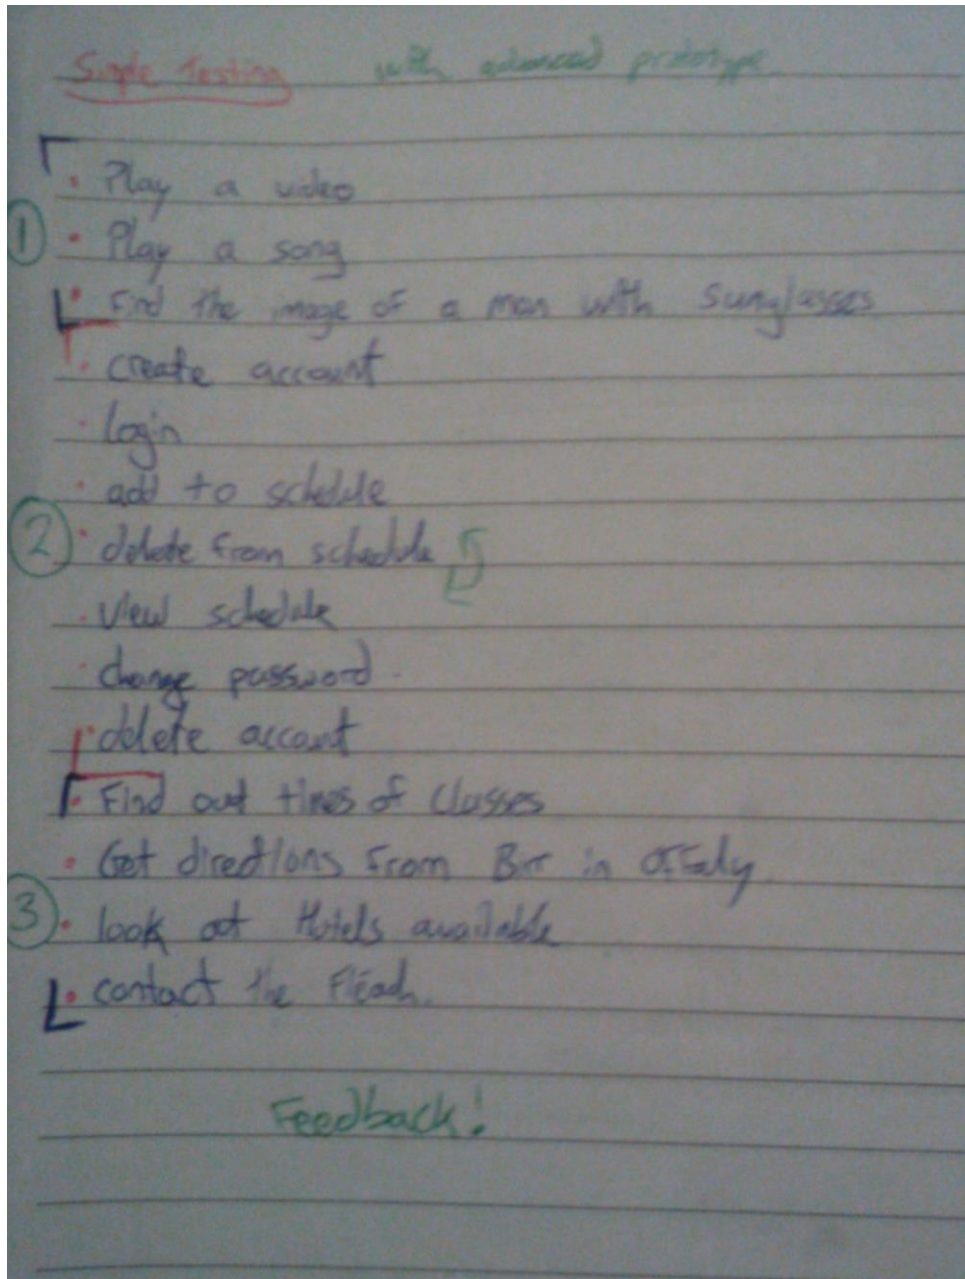 Simple Testing with advanced prototype.
• Play a video
① • Play a song
• Find the image of a man with Sunglasses
• create account
• login
• add to schedule
② • delete from schedule
• View schedule
• change password.
• delete account
• Find out times of Classes
• Get directions from Birr in Offaly.
③ • look at Hotels available
• contact the Fleadh.
Feedback!